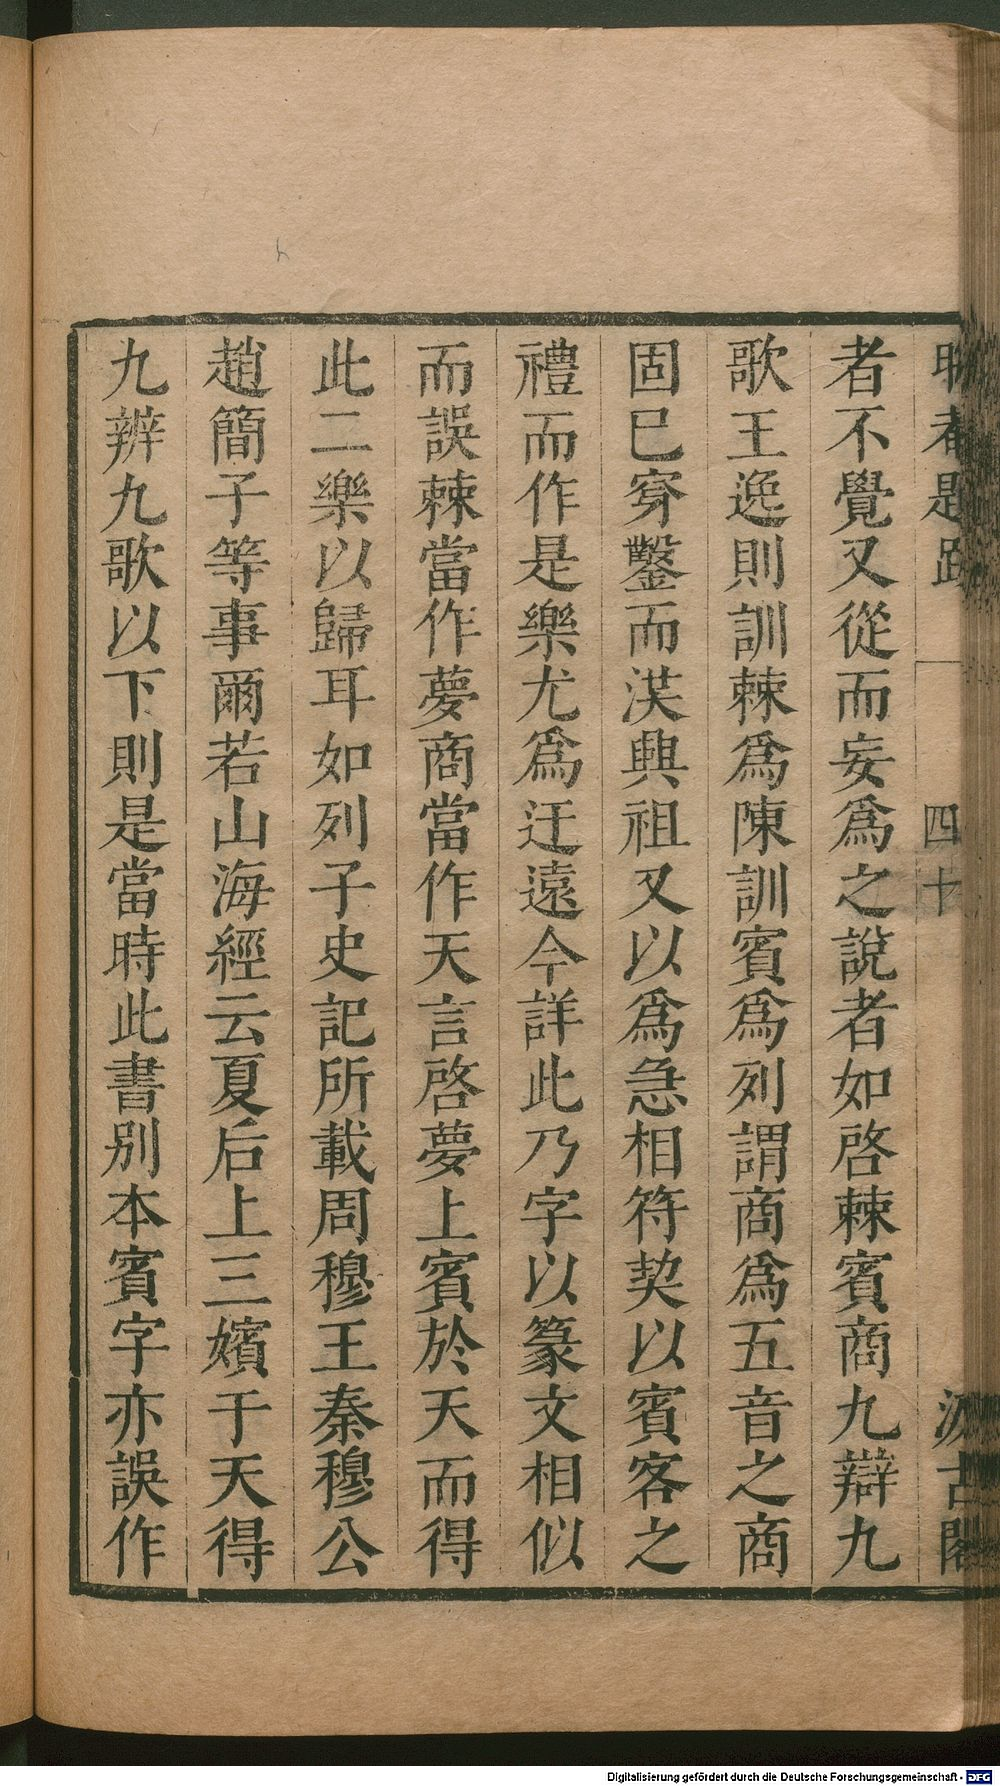 者不覺又從而妄爲之說者如啓棘賓商九辯九
歌王逸則訓棘爲陳訓賓爲列謂商爲五音之商
固已穿鑿而洪興祖又以爲急相符契以賓客之
禮而作是樂尤爲迂遠今詳此乃字以篆文相似
而誤棘當作夢商當作天言啓夢上賓於天而得
此二樂以歸耳如列子史記所載周穆王秦穆公
趙簡子等事爾若山海經云夏后上三嬪于天得
九辨九歌以下則是當時此書別本賓字亦誤作
四十
汲古閣
Digitalisierung gefördert durch die Deutsche Forschungsgemeinschaft - DFG